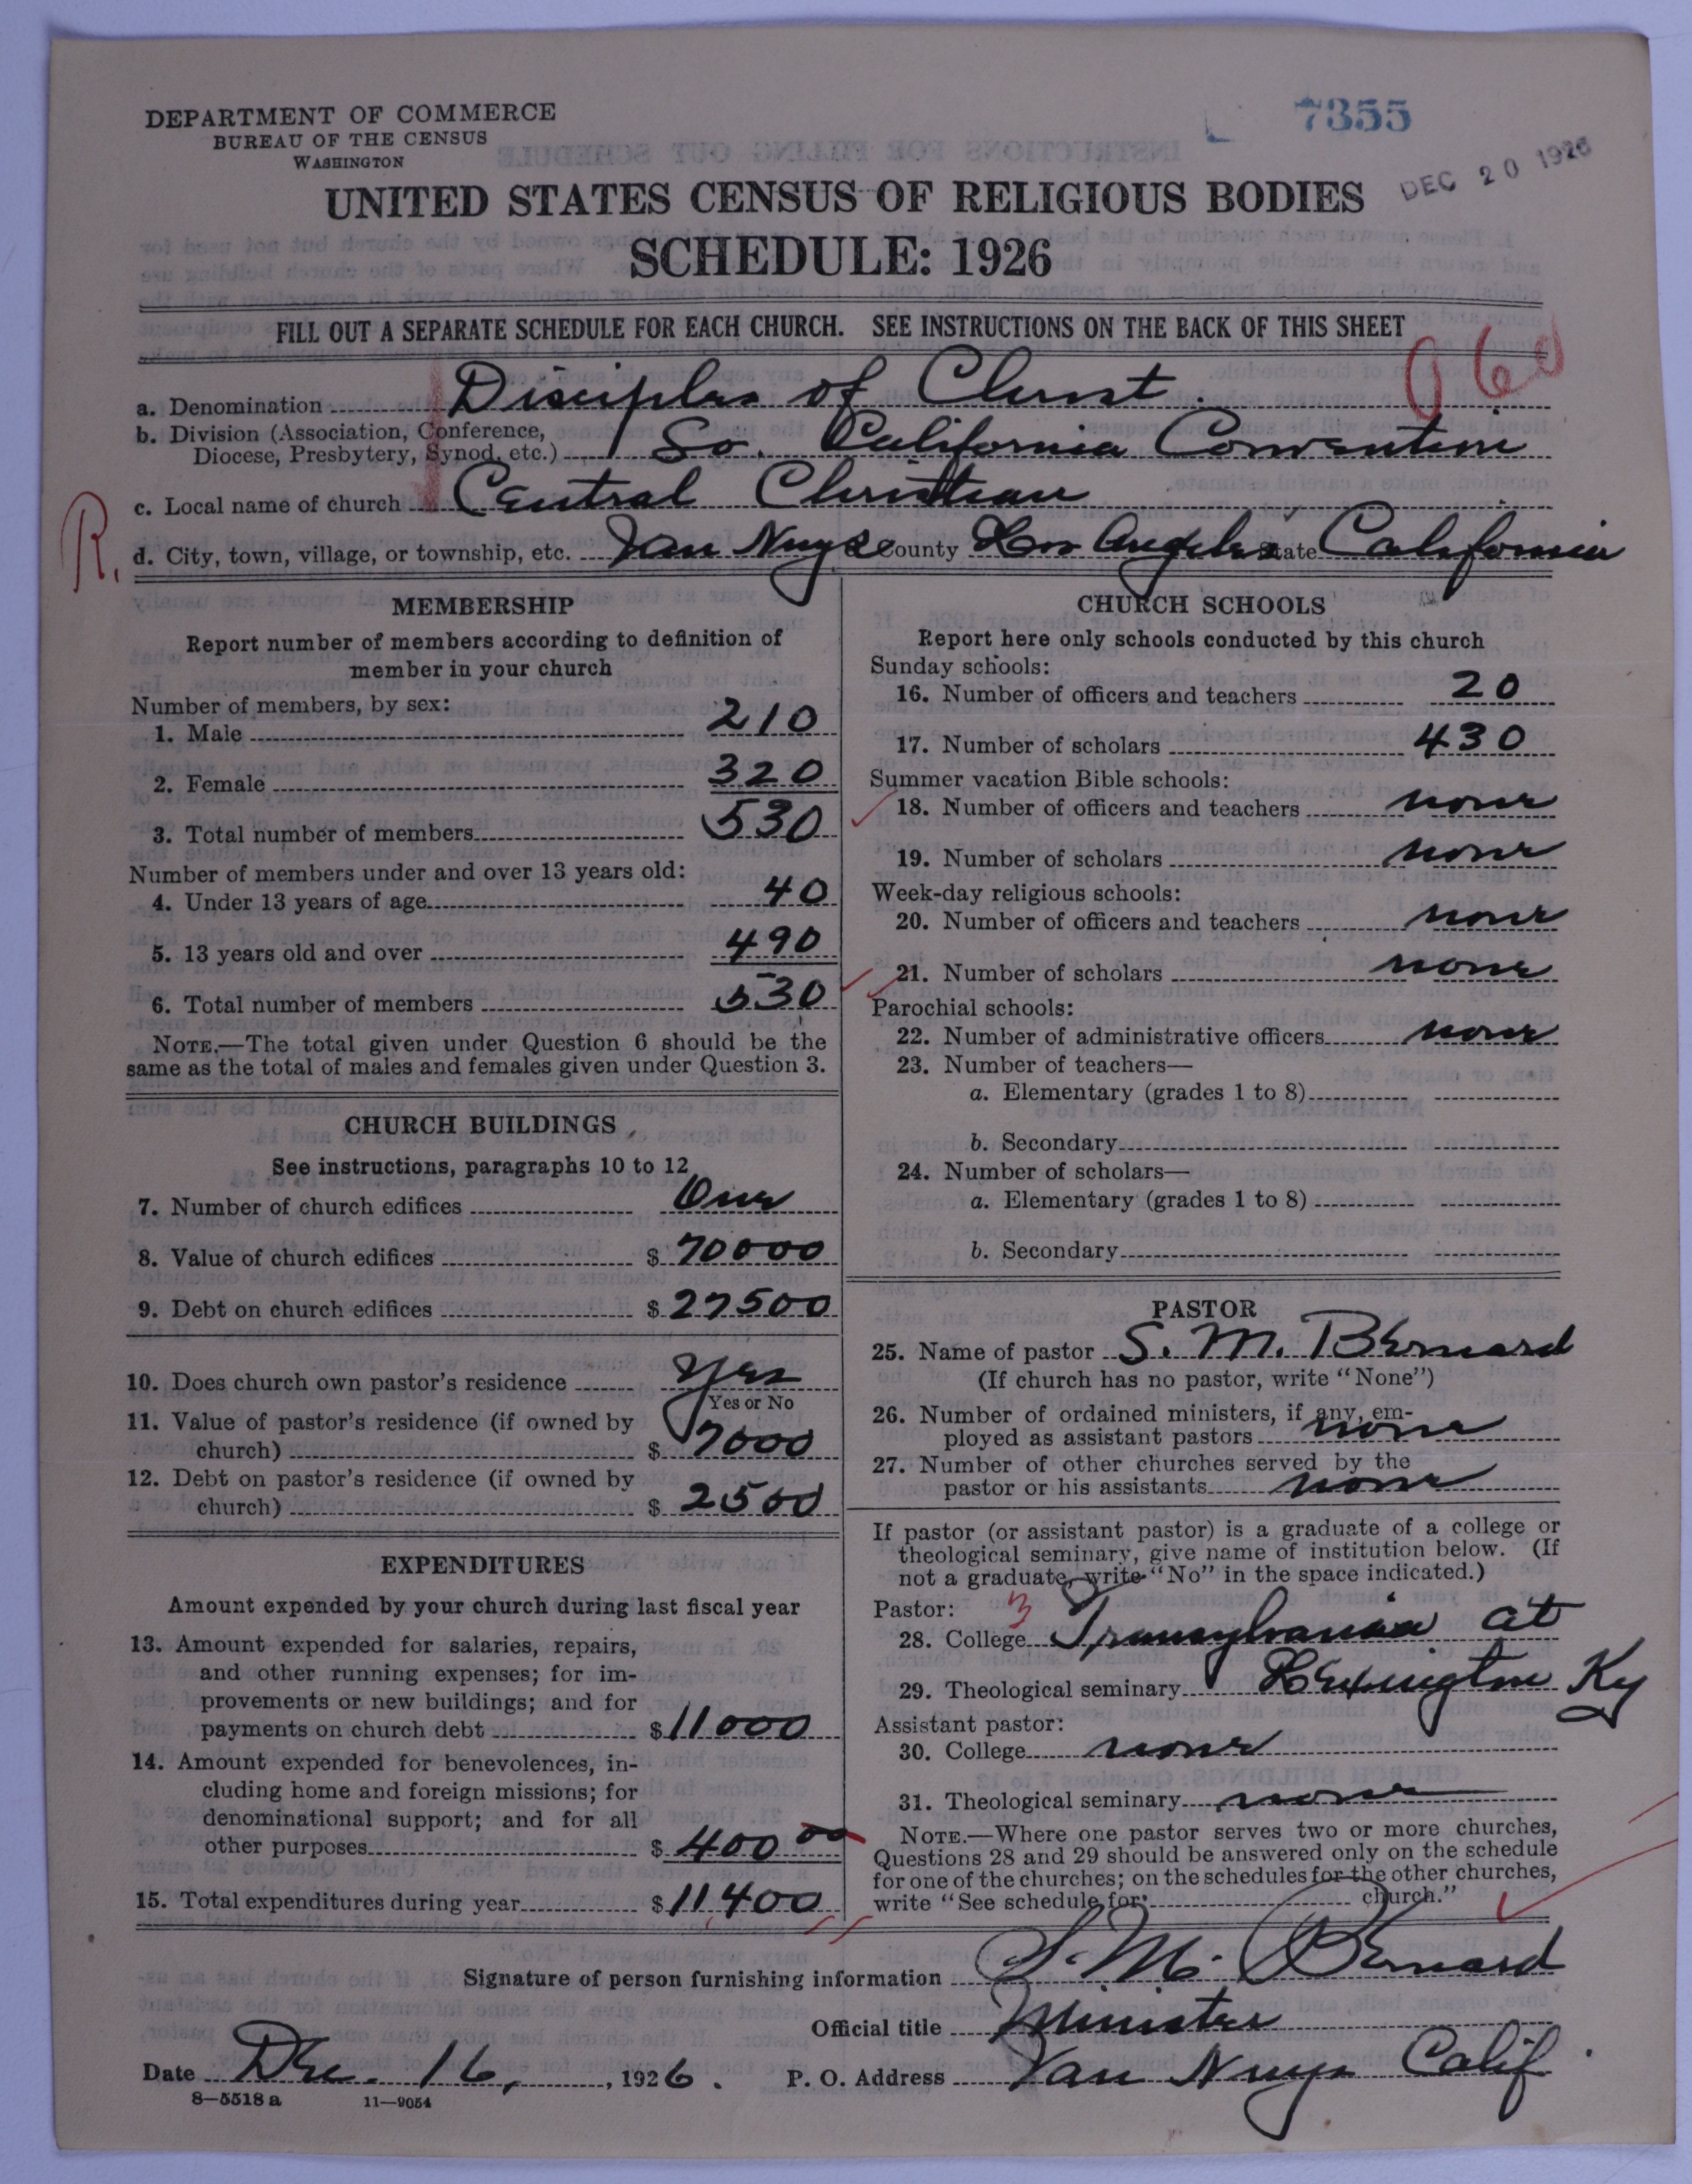 7355
DEC 20 1926
DEPARTMENT OF COMMERCE
BUREAU OF THE CENSUS
WASHINGTON
UNITED STATES CENSUS OF RELIGIOUS BODIES
SCHEDULE: 1926
FILL OUT A SEPARATE SCHEDULE FOR EACH CHURCH. SEE INSTRUCTIONS ON THE BACK OF THIS SHEET
060
a. Denomination Disciples of Christ.
b. Division (Association, Conference,
Diocese, Presbytery, Synod, etc.) So. California Convention
c. Local name of church Central Christian
R. d. City, town, village, or township, etc. Van Nuys County Los Angeles State California
MEMBERSHIP
Report number of members according to definition of
member in your church
Number of members, by sex:
1. Male 210
2. Female 320
3. Total number of members 530
Number of members under and over 13 years old:
4. Under 13 years of age 40
5. 13 years old and over 490
6. Total number of members 530
NOTE.—The total given under Question 6 should be the
same as the total of males and females given under Question 3.
CHURCH BUILDINGS
See instructions, paragraphs 10 to 12
7. Number of church edifices One
8. Value of church edifices $ 70000
9. Debt on church edifices $ 27500
10. Does church own pastor's residence Yes
Yes or No
11. Value of pastor's residence (if owned by
church) $ 7000
12. Debt on pastor's residence (if owned by
church) $ 2500
EXPENDITURES
Amount expended by your church during last fiscal year
13. Amount expended for salaries, repairs,
and other running expenses; for im-
provements or new buildings; and for
payments on church debt $ 11000
14. Amount expended for benevolences, in-
cluding home and foreign missions; for
denominational support; and for all
other purposes $ 400 00
15. Total expenditures during year $ 11,400
CHURCH SCHOOLS
Report here only schools conducted by this church
Sunday schools:
16. Number of officers and teachers 20
17. Number of scholars 430
Summer vacation Bible schools:
18. Number of officers and teachers none
19. Number of scholars none
Week-day religious schools:
20. Number of officers and teachers none
21. Number of scholars none
Parochial schools:
22. Number of administrative officers none
23. Number of teachers—
a. Elementary (grades 1 to 8)
b. Secondary
24. Number of scholars—
a. Elementary (grades 1 to 8)
b. Secondary
PASTOR
25. Name of pastor S. M. Bernard
(If church has no pastor, write "None")
26. Number of ordained ministers, if any, em-
ployed as assistant pastors none
27. Number of other churches served by the
pastor or his assistants none
If pastor (or assistant pastor) is a graduate of a college or
theological seminary, give name of institution below. (If
not a graduate, write "No" in the space indicated.)
Pastor: 3
28. College Transylvania at
29. Theological seminary Lexington Ky
Assistant pastor:
30. College none
31. Theological seminary none
NOTE.—Where one pastor serves two or more churches,
Questions 28 and 29 should be answered only on the schedule
for one of the churches; on the schedules for the other churches,
write "See schedule for church."
Signature of person furnishing information S. M. Bernard
Official title Minister
Date Dec. 16, 1926. P. O. Address Van Nuys Calif.
8—5518 a 11—9054